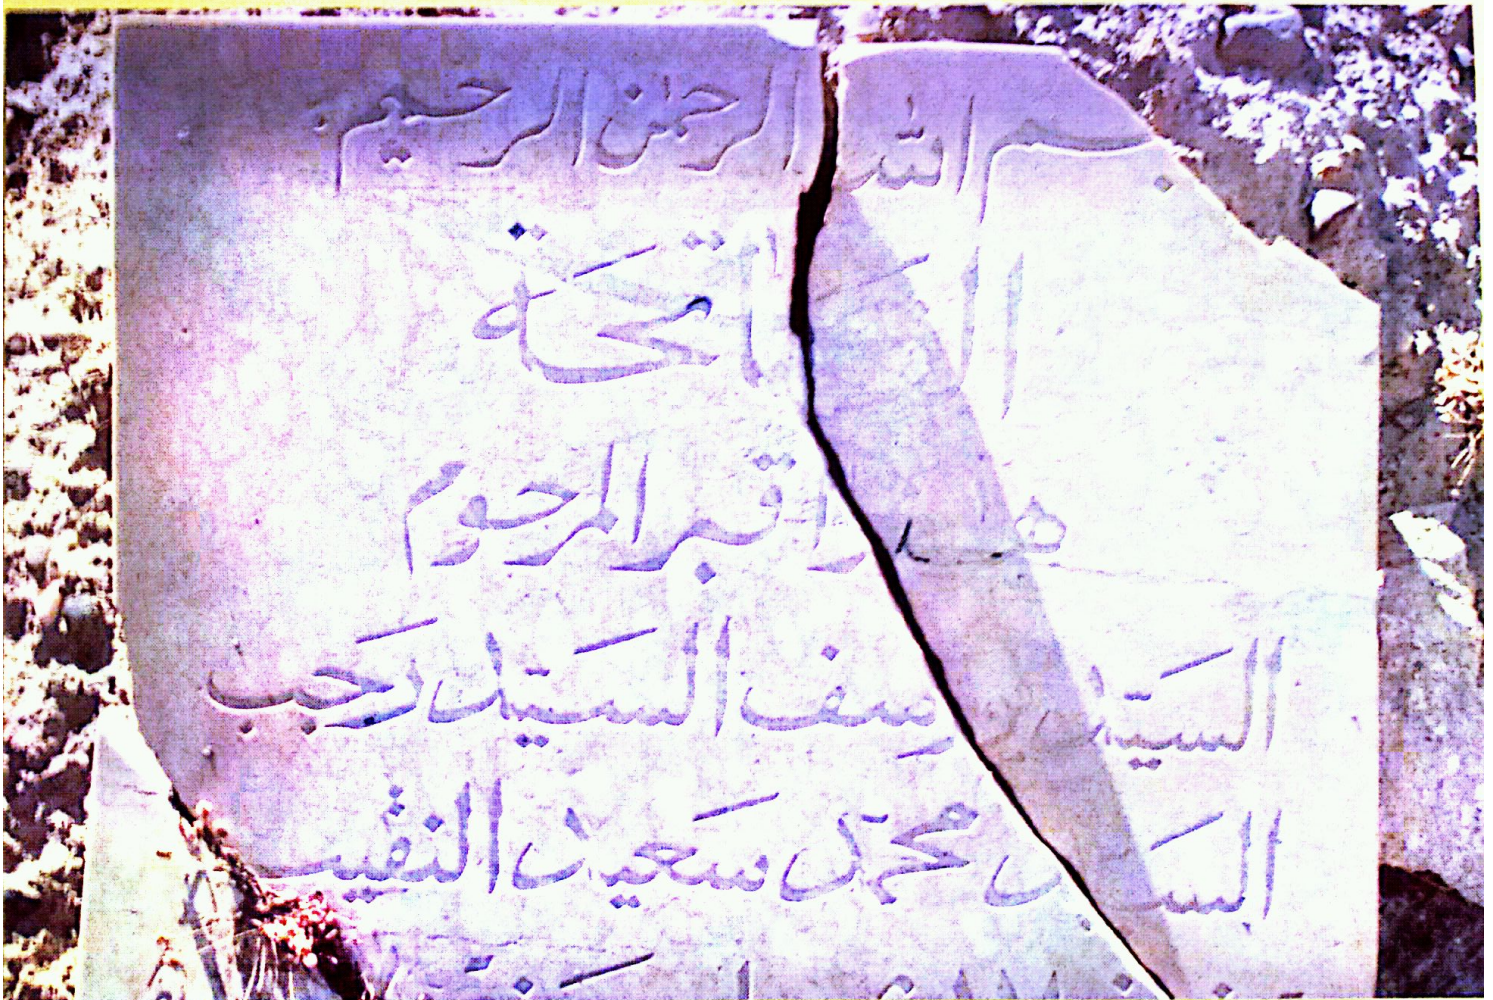 بسم الله الرحمن الرحيم
الفاتحة
هذا قبر المرحوم
السيد يوسف السيد رجب
السيد محمد سعيد النقيب